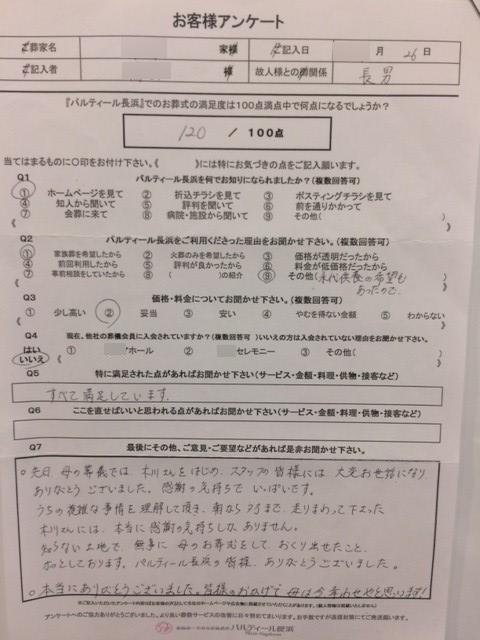 お客様アンケート
ご葬家名 家様 ご記入日 月 26 日
ご記入者 様 故人様との御関係 長男
『パルティール長浜』でのお葬式の満足度は100点満点中で何点になるでしょうか？
120 / 100点
当てはまるものに○印をお付け下さい。《 》には特にお気づきの点をご記入願います。
Q1 パルティール長浜を何でお知りになられましたか？（複数回答可）
① ホームページを見て ② 折込チラシを見て ③ ポスティングチラシを見て
④ 知人から聞いて ⑤ 評判を聞いて ⑥ 前を通りかかって
⑦ 会葬に来て ⑧ 病院・施設から聞いて ⑨ その他( )
《 》
Q2 パルティール長浜をご利用くださった理由をお聞かせ下さい。（複数回答可）
① 家族葬を希望したから ② 火葬のみを希望したから ③ 価格が透明だったから
④ 前回利用したから ⑤ 評判が良かったから ⑥ 料金が低価格だったから
⑦ 事前相談をしていたから ⑧ ( )の紹介 ⑨ その他(永代供養の希望も
《 あったので 》
Q3 価格・料金についてお聞かせ下さい。
① 少し高い ② 妥当 ③ 安い ④ やむを得ない金額 ⑤ わからない
《 》
Q4 現在、他社の葬儀会員に入会されていますか？（複数回答可） いいえの方は入会されていない理由をお聞かせ下さい。
はい ① ホール ② セレモニー ③ その他( )
いいえ 《 》
Q5 特に満足された点があればお聞かせ下さい（サービス・金額・料理・供物・接客など）
すべて満足しています。
Q6 ここを直せばいいと思われる点があればお聞かせ下さい（サービス・金額・料理・供物・接客など）
Q7 最後にその他、ご意見・ご要望などがあれば是非お聞かせ下さい。
○先日、母の葬義では、木川さんをはじめ、スタッフの皆様には、大変お世話になり
ありがとうございました。感謝の気持ちで、いっぱいです。
うちの複雑な事情を理解して頂き、朝から まで、走りまわって下さった
木川さんには、本当に感謝の気持ちしかありません。
知らない土地で、無事に母のお葬式をして、おくり出せたこと、
ホッとしております。パルティール長浜の皆様、ありがとうございました。
○本当にありがとうございました。皆様のおかげで母は今幸わせやと思います!
※ご記入いただいたアンケート内容はお客様の声として当社のホームページや広告等に掲載させていただくことがあります。（個人情報は掲載いたしません）
アンケートへのご協力ありがとうございました。より良い葬祭サービスの改善に日々努めてまいります。お手数ですが返信封筒にてご発送願います。
パルティール長浜